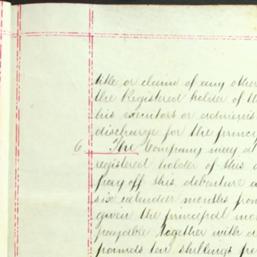 title or claim of any other
the Registered holder of th
his executors or adminis
discharge for the princi
6 The Company may a
registered holder of this d
pay off this debenture a
six calendar months from
given the principal mo
payable together with a
pounds ten shillings pe